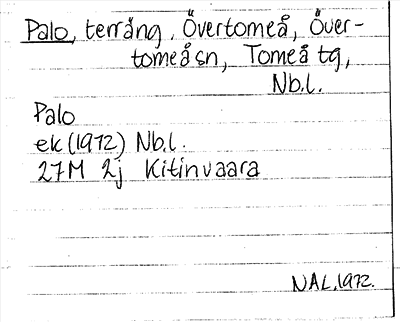 Palo, terräng, Övertomeå, Över-
tomeåsn, Tomeå tg,
Nb.l.
Palo
ek (1972) Nb.l.
27M 2j Kitinvaara
NAL.1972.